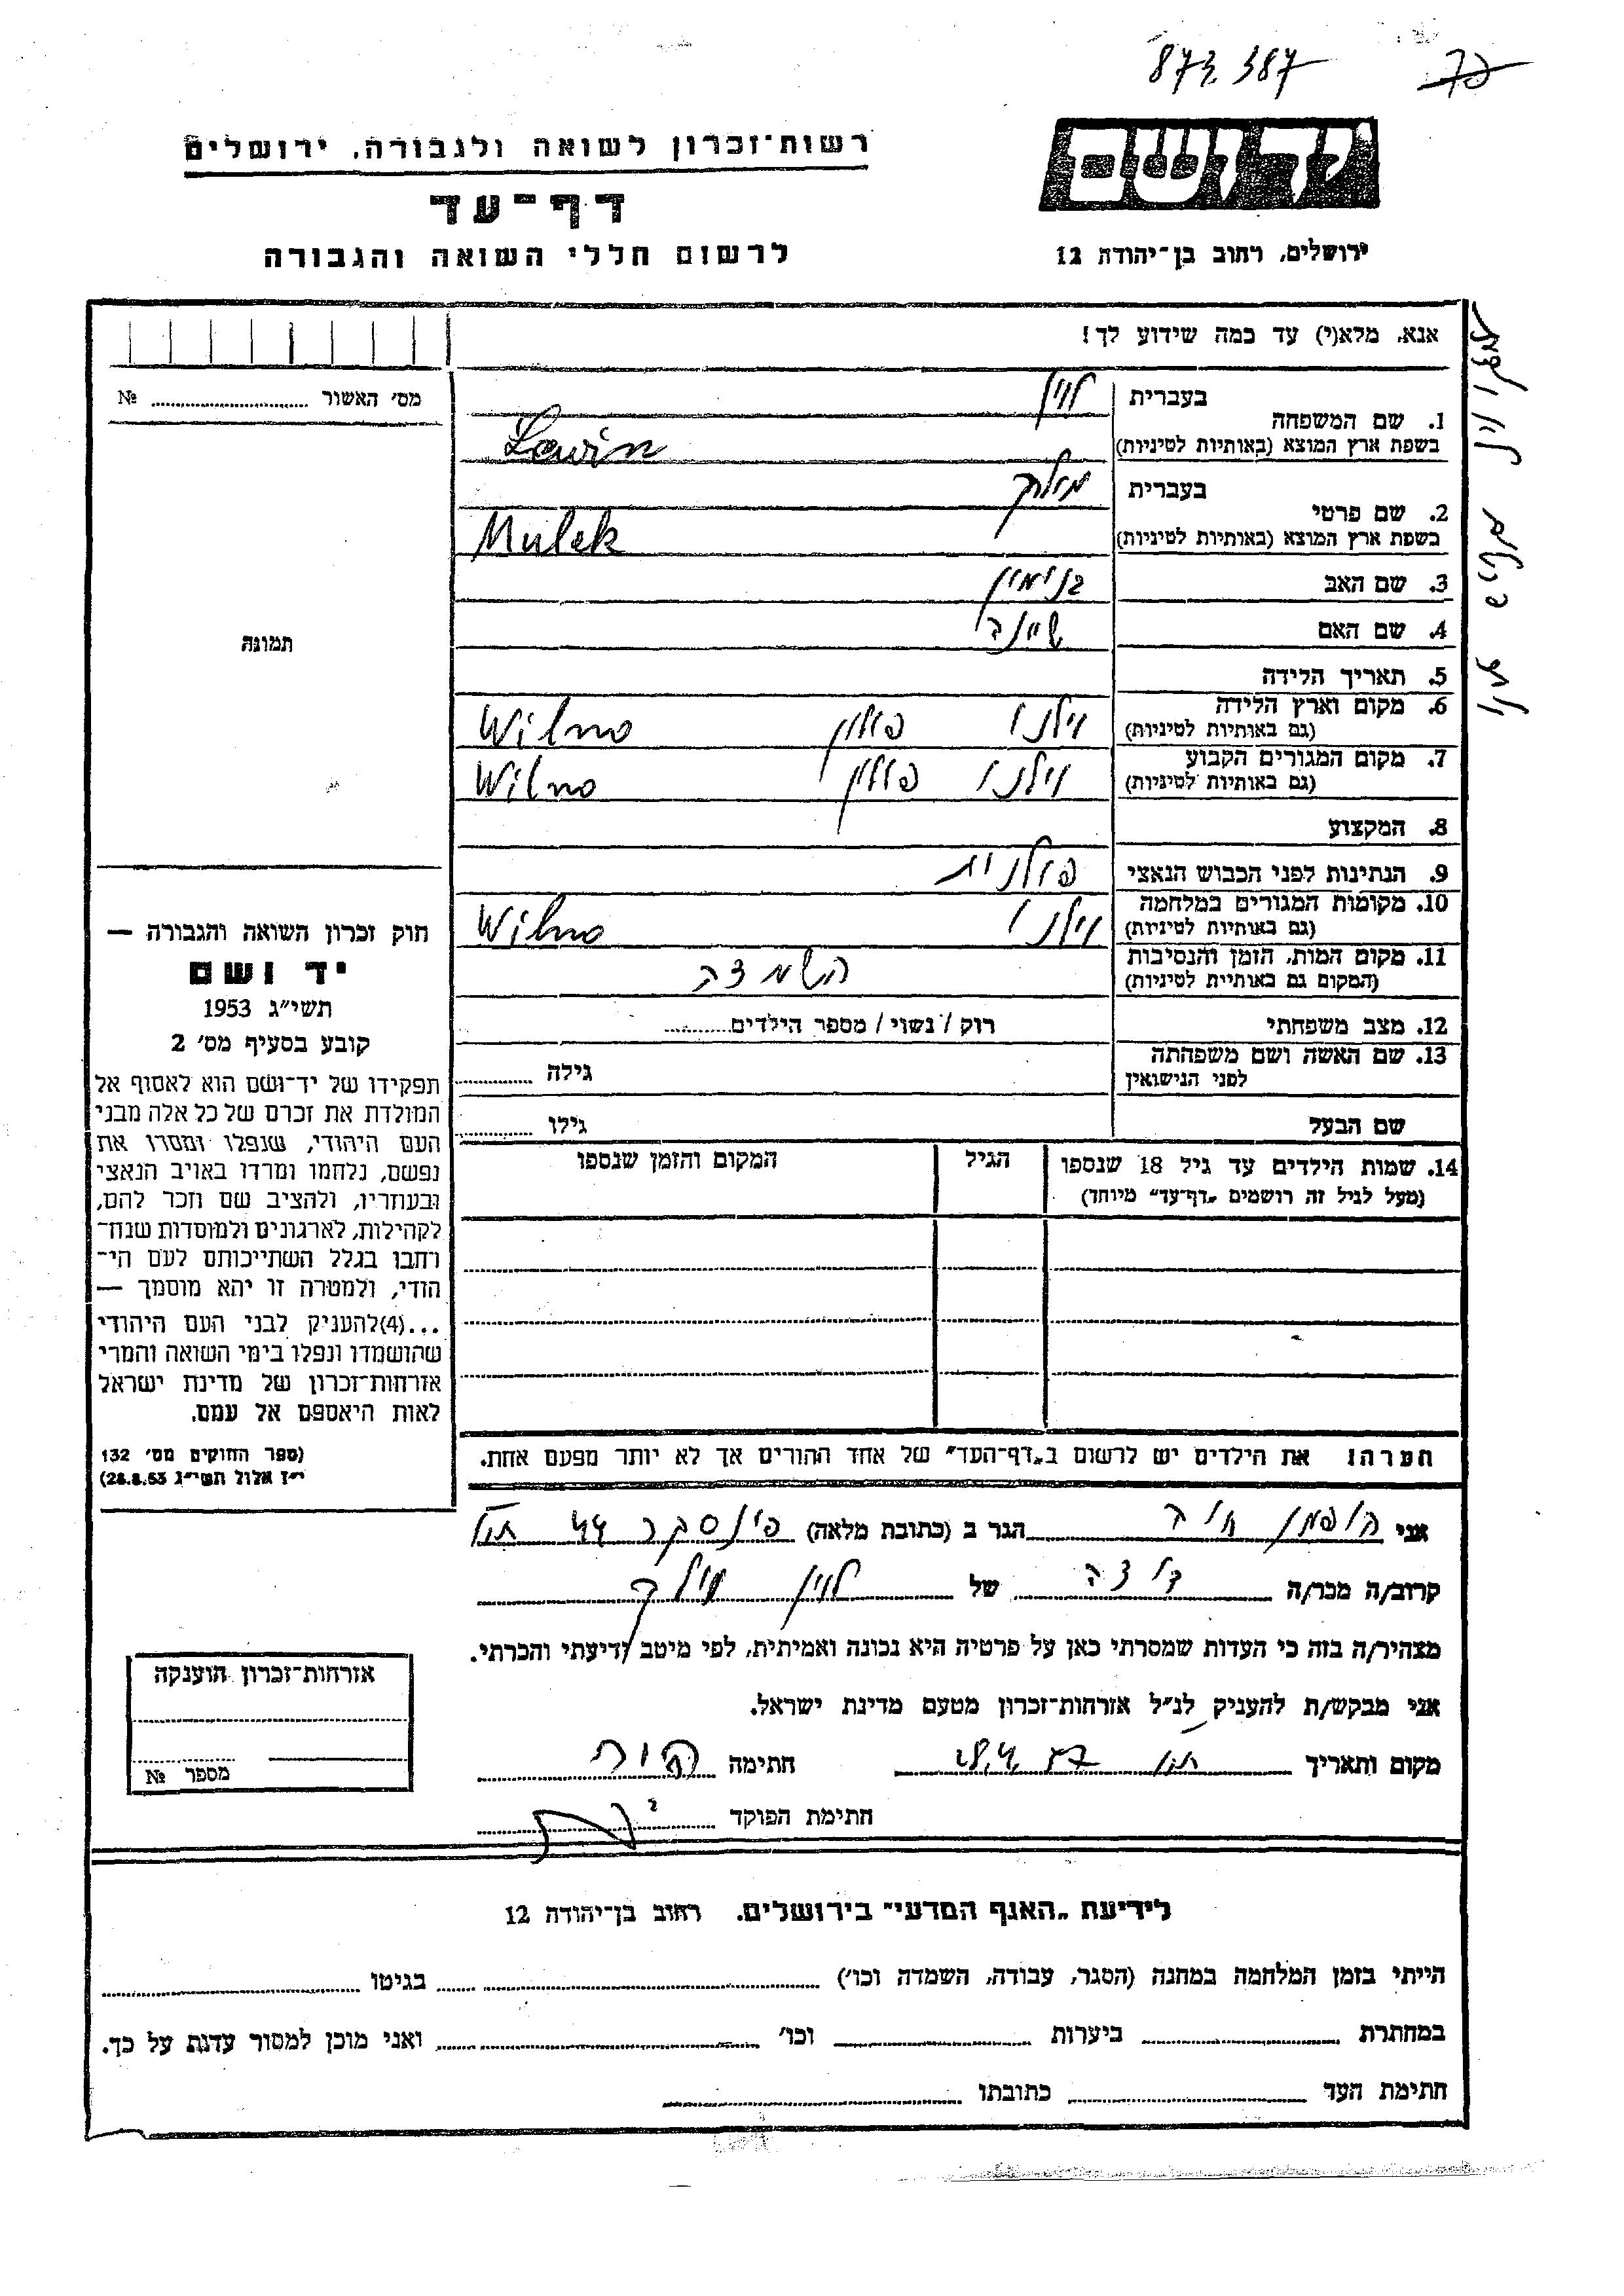 873.387
73
יד ושם
רשות־זכרון לשואה ולגבורה, ירושלים
דף־עד
לרשום חללי השואה והגבורה
ירושלים, רחוב בן־יהודה 12
אנא, מלא(י) עד כמה שידוע לך!
מס׳ האשור ........ №
בעברית לוין
1. שם המשפחה
בשפת ארץ המוצא (באותיות לטיניות) Lewin
בעברית מולק
2. שם פרטי
בשפת ארץ המוצא (באותיות לטיניות) Mulek
3. שם האב בנימין
4. שם האם שיינה
תמונה
5. תאריך הלידה
6. מקום וארץ הלידה
(גם באותיות לטיניות) וילנו פולין Wilno
7. מקום המגורים הקבוע
(גם באותיות לטיניות) וילנו פולין Wilno
8. המקצוע
9. הנתינות לפני הכבוש הנאצי פולנית
10. מקומות המגורים במלחמה
(גם באותיות לטיניות) וילנו Wilno
11. מקום המות, הזמן והנסיבות
(המקום גם באותיית לטיניות) השמדה
12. מצב משפחתי רוק/נשוי/מספר הילדים........
13. שם האשה ושם משפחתה
לפני הנישואין גילה ........
שם הבעל גילו ........
14. שמות הילדים עד גיל 18 שנספו הגיל המקום והזמן שנספו
(מעל לגיל זה רושמים „דף־עד״ מיוחד)
חוק זכרון השואה והגבורה —
יד ושם
תשי״ג 1953
קובע בסעיף מס׳ 2
תפקידו של יד־ושם הוא לאסוף אל
המולדת את זכרם של כל אלה מבני
העם היהודי, שנפלו ומסרו את
נפשם, נלחמו ומרדו באויב הנאצי
ובעוזריו, ולהציב שם וזכר להם,
לקהילות, לארגונים ולמוסדות שנח־
רבו בגלל השתייכותם לעם הי־
הודי, ולמטרה זו יהא מוסמך —
...(4)להעניק לבני העם היהודי
שהושמדו ונפלו בימי השואה והמרי
אזרחות־זכרון של מדינת ישראל
לאות היאספם אל עמם.
(ספר החוקים מס׳ 132
י״ז אלול תשי״ג 28.8.53)
הערה! את הילדים יש לרשום ב„דף־העד״ של אחד ההורים אך לא יותר מפעם אחת.
אני הופמן הגר ב (כתובת מלאה) פינסקר 44
קרוב/ה מכר/ה דודה של לוין מולק
מצהיר/ה בזה כי העדות שמסרתי כאן על פרטיה היא נכונה ואמיתית, לפי מיטב ידיעתי והכרתי.
אני מבקש/ת להעניק לנ״ל אזרחות־זכרון מטעם מדינת ישראל.
מקום ותאריך חתימה
חתימת הפוקד
אזרחות־זכרון הוענקה
מספר №
לידיעת „האגף המדעי״ בירושלים. רחוב בן־יהודה 12
הייתי בזמן המלחמה במחנה (הסגר, עבודה, השמדה וכו׳) ........ בגיטו ........
במחתרת ........ ביערות ........ וכו׳ ........ ואני מוכן למסור עדות על כך.
חתימת העד ........ כתובתו ........